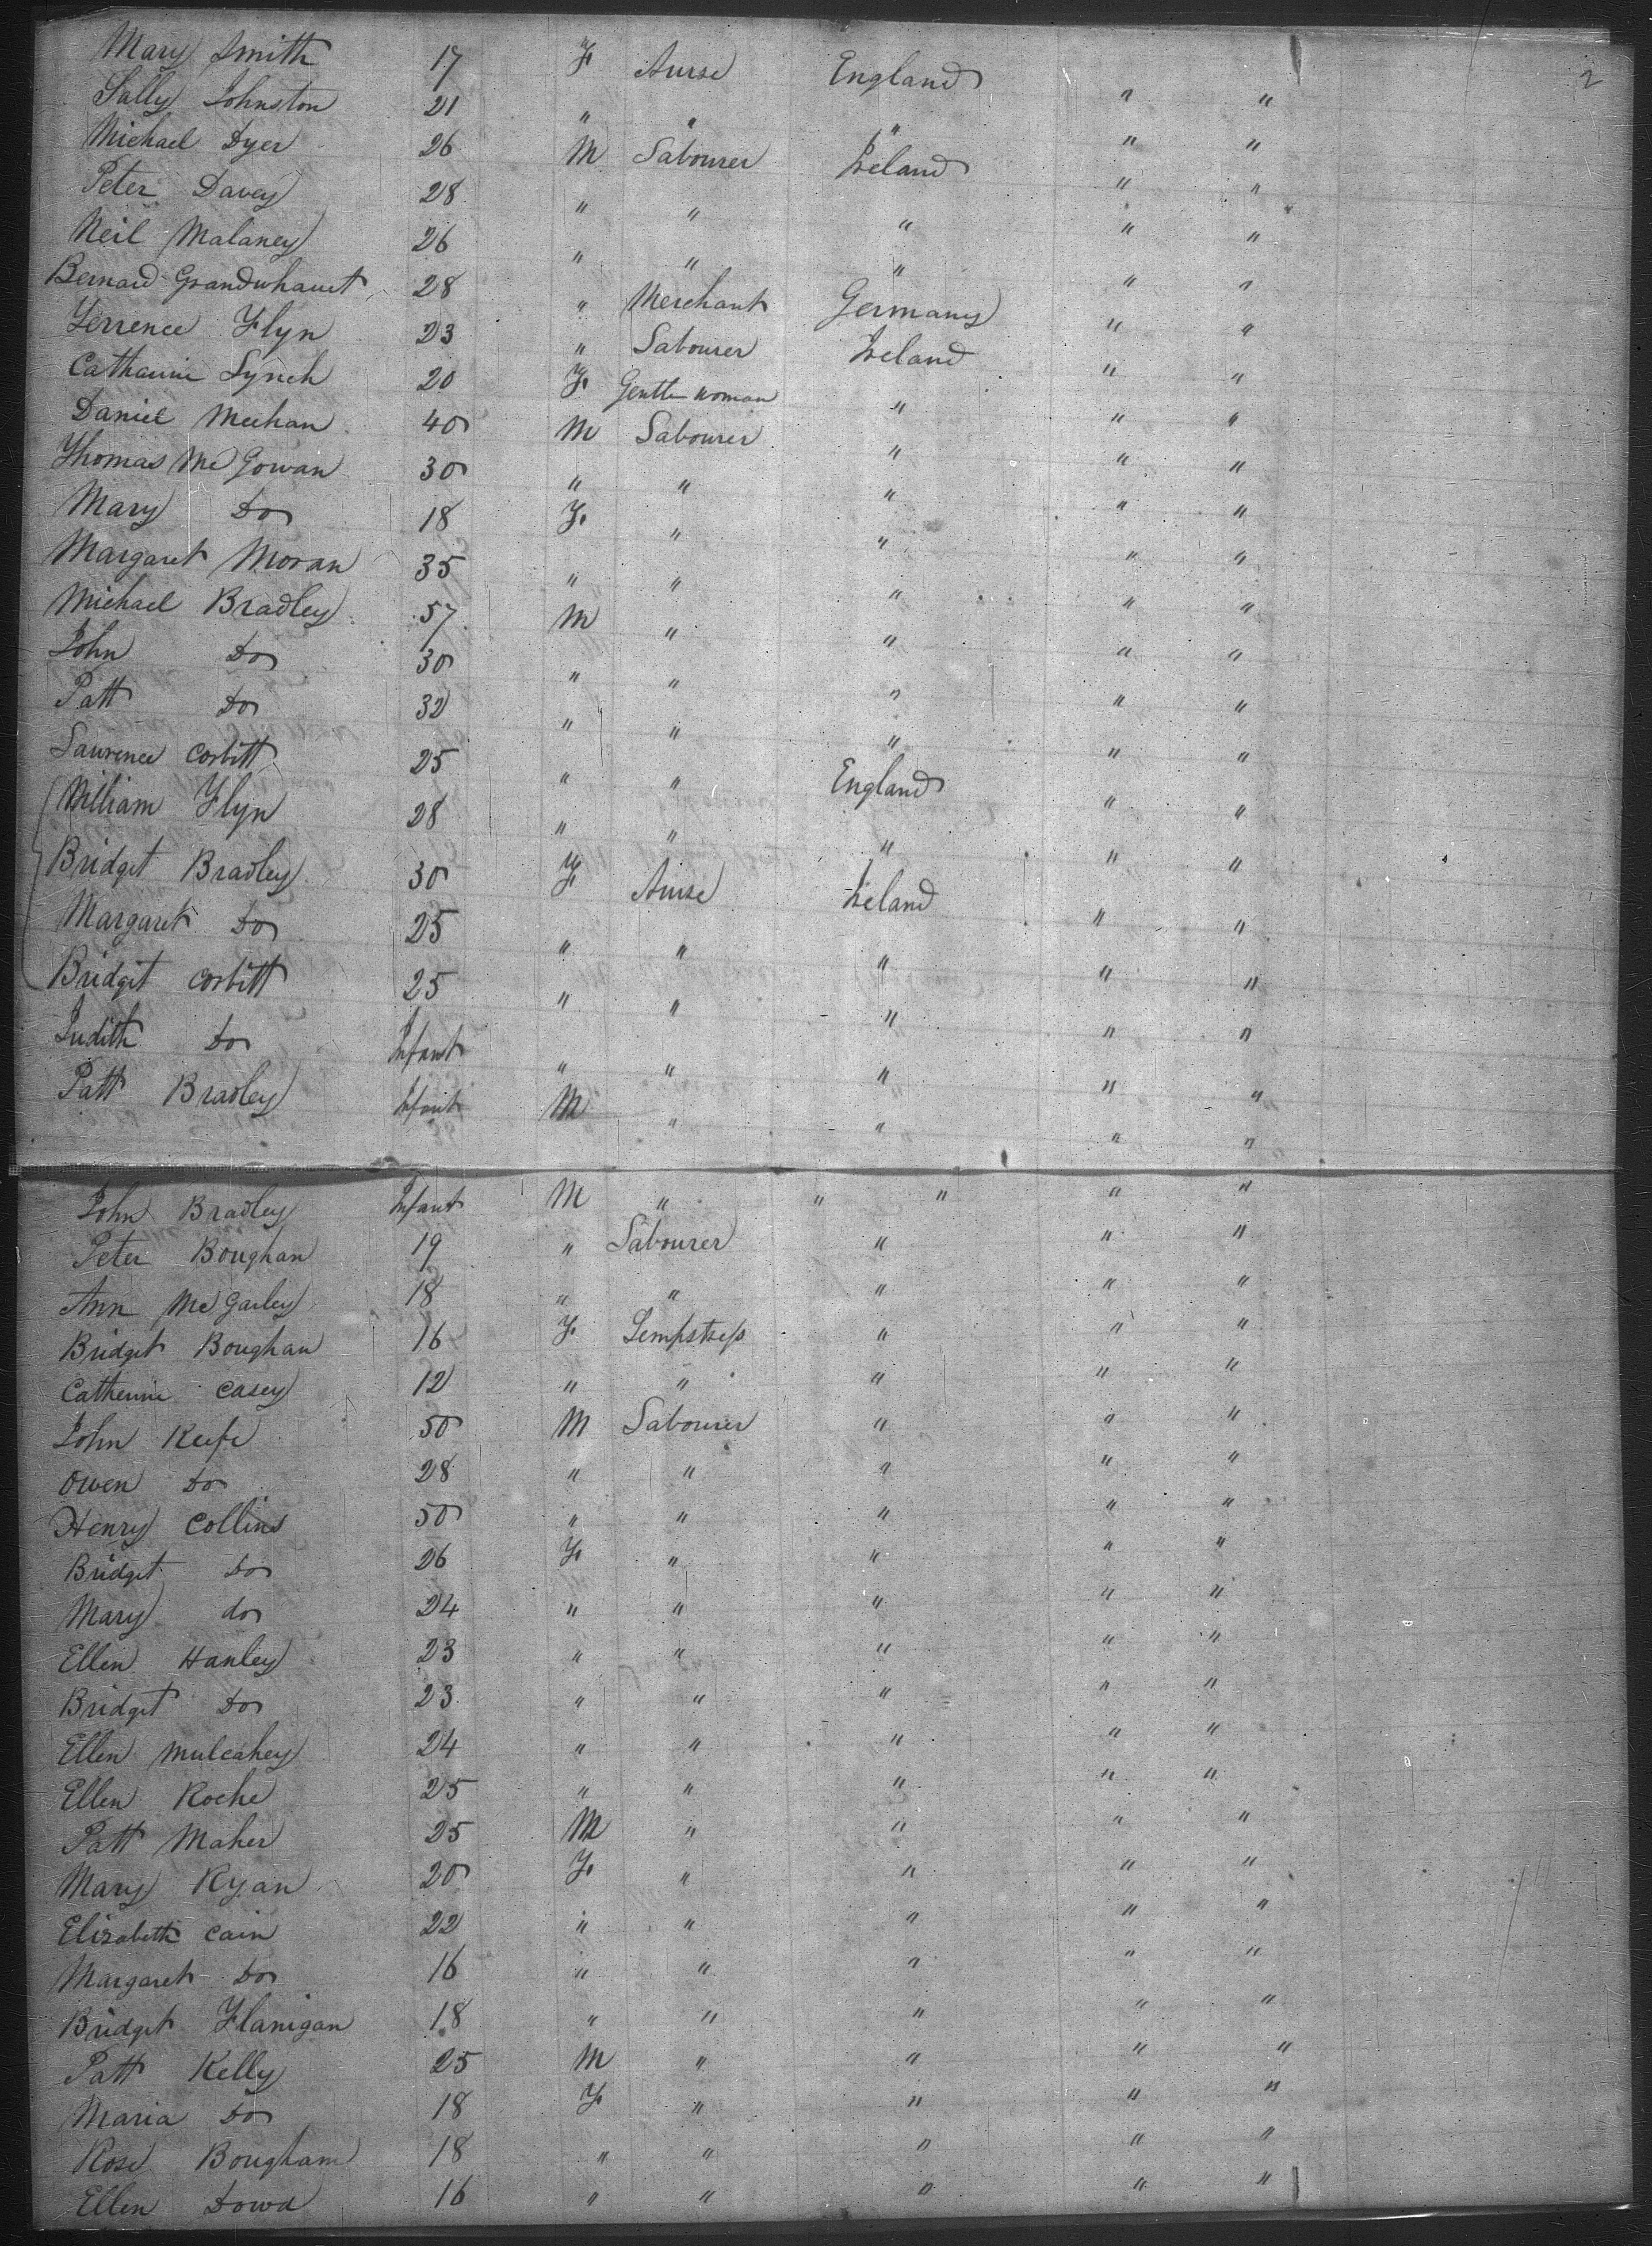 2
Mary Smith 17 F Nurse England " "
Sally Johnston 21 " " " " "
Michael Dyer 26 M Labourer Ireland " "
Peter Davey 28 " " " " "
Neil Malaney 26 " " " " "
Bernard Granduhauet 28 " Merchant Germany " "
Terrence Flyn 23 " Labourer Ireland " "
Catharine Lynch 20 F Gentle woman " " "
Daniel Meehan 40 M Labourer " " "
Thomas McGowan 30 " " " " "
Mary Do 18 F " " " "
Margaret Moran 35 " " " " "
Michael Bradley 57 M " " " "
John Do 30 " " " " "
Patt Do 32 " " " " "
Laurence Corbitt 25 " " England " "
William Flyn 28 " " " " "
Bridget Bradley 30 F Nurse Ireland " "
Margaret Do 25 " " " " "
Bridgit Corbitt 25 " " " " "
Judith Do Infant " " " " "
Patt Bradley Infant M " " " "
John Bradley Infant M " " " " "
Peter Boughan 19 " Labourer " " "
Ann McGarley 18 " " " " "
Bridget Boughan 16 F Sempstress " " "
Catherine Casey 12 " " " " "
John Keefe 50 M Labourer " " "
Owen Do 28 " " " " "
Henry Collins 50 " " " " "
Bridget Do 26 F " " " "
Mary do 24 " " " " "
Ellen Hanley 23 " " " " "
Bridget Do 23 " " " " "
Ellen Mulcahey 24 " " " " "
Ellen Roche 25 " " " " "
Patt Maher 25 M " " " "
Mary Ryan 20 F " " " "
Elizabeth Cain 22 " " " " "
Margaret Do 16 " " " " "
Bridget Flanigan 18 " " " " "
Patt Kelly 25 M " " " "
Maria Do 18 F " " " "
Rose Bougham 18 " " " " "
Ellen Dowd 16 " " " " "